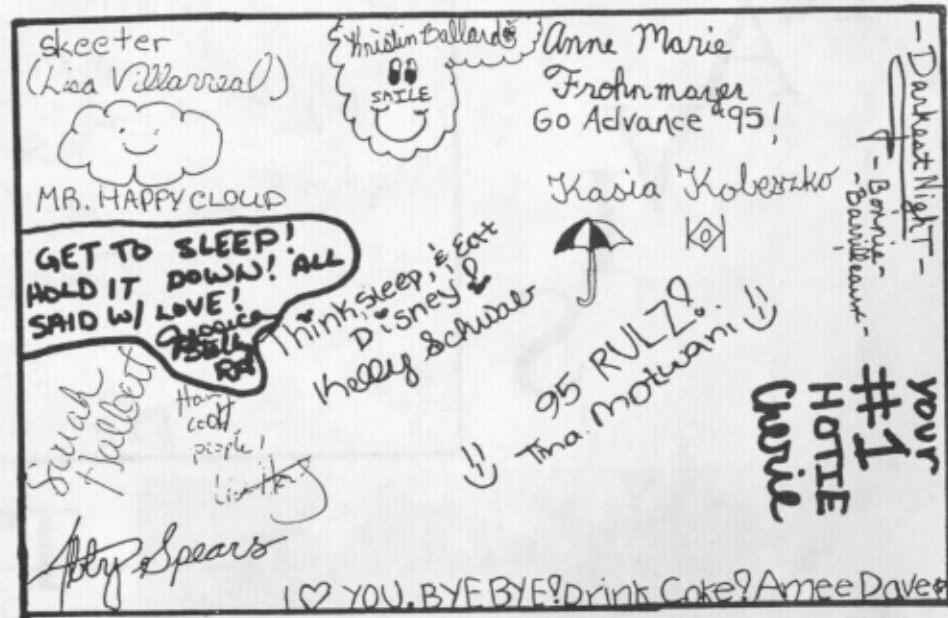 skeeter
(Lisa Villarreal)
MR. HAPPY CLOUD
Kristin Ballard
SMILE
Anne Marie
Frohnmayer
Go Advance '95!
Kasia Kobeszko
- Darkest Night -
- Bonnie -
GET TO SLEEP!
HOLD IT DOWN! ALL
SAID W/ LOVE!
Jessica
RA
Think, sleep, & Eat
Disney!
Kelly Schwab
95 RULZ!
Tina Motwani
your
#1
HOTIE
Cherie
Sarah
Hallbert
people!
Abby Spears
I ♡ YOU. BYE BYE! Drink Coke! Amee Dave